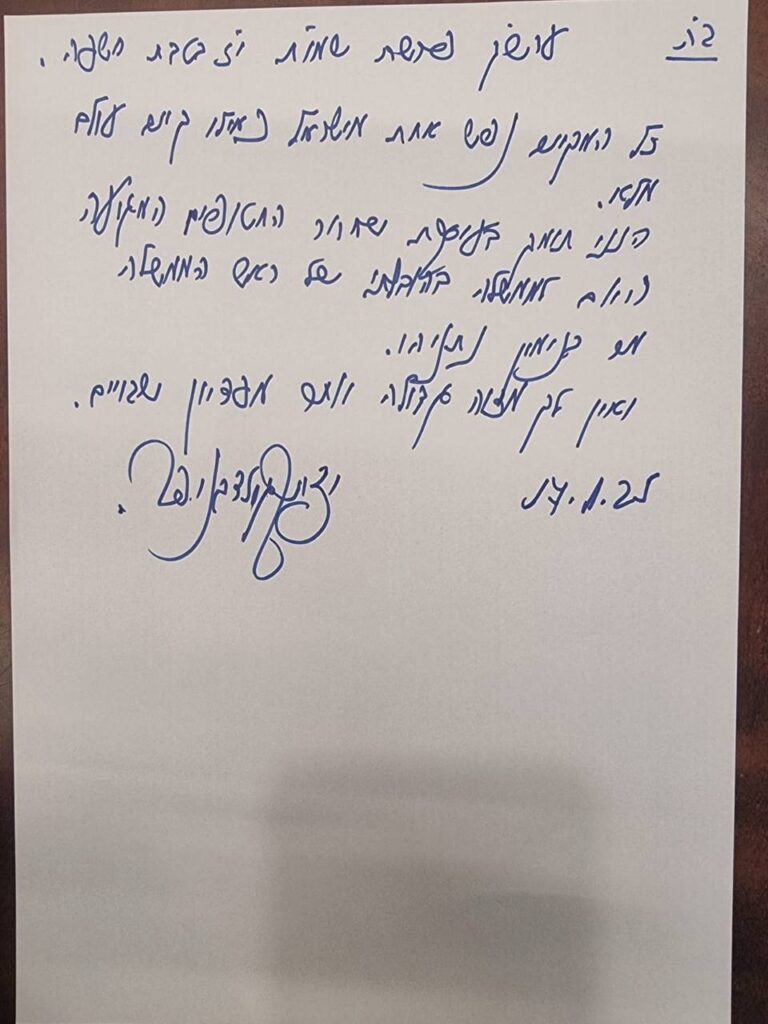 ב"ה
ערש"ק פרשת שמות י"ז בטבת תשפ"ה.
כל המקיים נפש אחת מישראל כאילו קיים עולם
מלא.
הנני תומך בעיסקת שחרור החטופים המגיעה
היום לממשלה בהובלתו של ראש הממשלה
מר בנימין נתניהו.
ואין לך מצוה גדולה יותר מפדיון שבויים.
17.1.25
יצחק גולדקנופף.